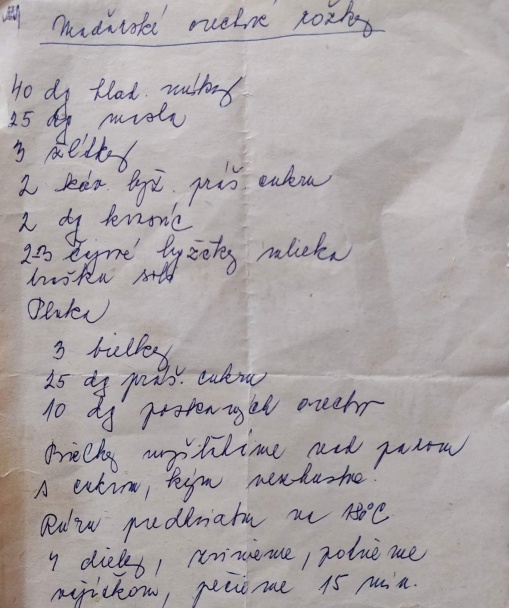 Maďarské orechové rožky
40 dg hlad. múky
25 dg masla
3 žĺtky
2 káv. lyž. práš cukru
2 dg kvasníc
2-3 čajové lyžičky mlieka
troška soli
Plnka
3 bielky
25 dg práš. cukru
10 dg postrúhaných orechov
Bielky vyšľaháme nad parou
s cukrom, kým nezhustne.
Rúru predhriatu na 180°C
4 diely, zvinieme, potrieme
vajíčkom, pečieme 15 min.